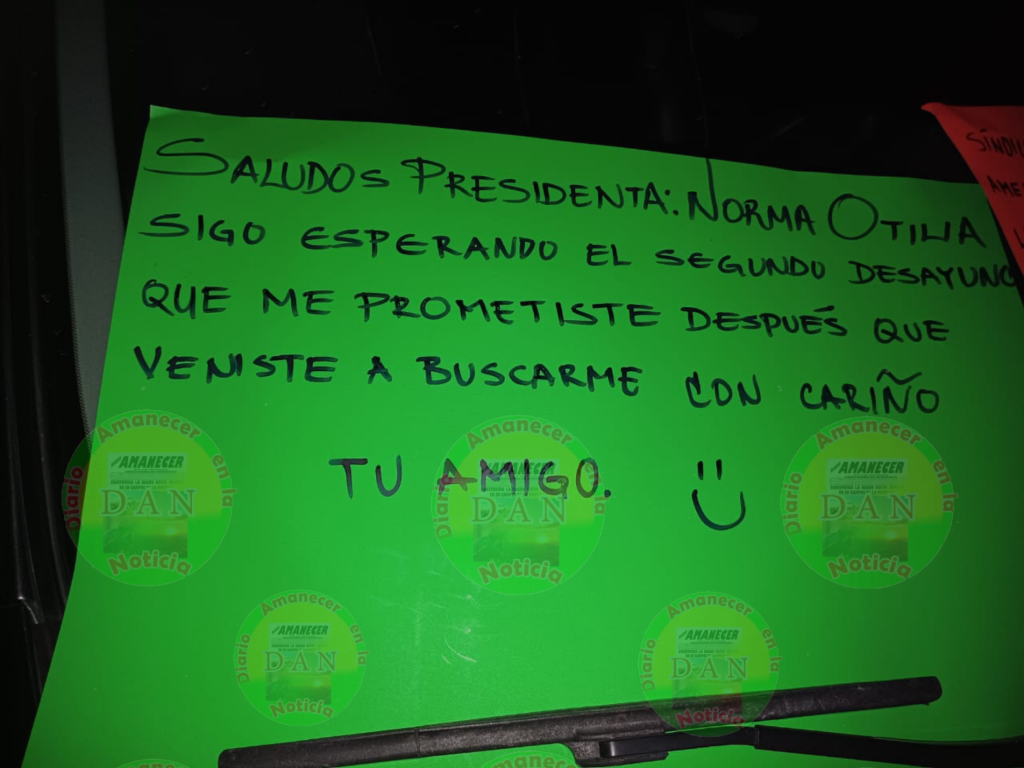 SALUDOS PRESIDENTA: NORMA OTILIA
SIGO ESPERANDO EL SEGUNDO DESAYUNO
QUE ME PROMETISTE DESPUÉS QUE
VENISTE A BUSCARME CON CARIÑO
TU AMIGO.
SÍNDI
AME
Diario Amanecer en la Noticia
AMANECER
D-AN
Diario Amanecer en la Noticia
AMANECER
D-AN
Diario Amanecer en la Noticia
AMANECER
D-AN
Diario Amanecer en la Noticia
AMANECER
D-AN
Diario Amanecer en la Noticia
AMANECER
D-AN